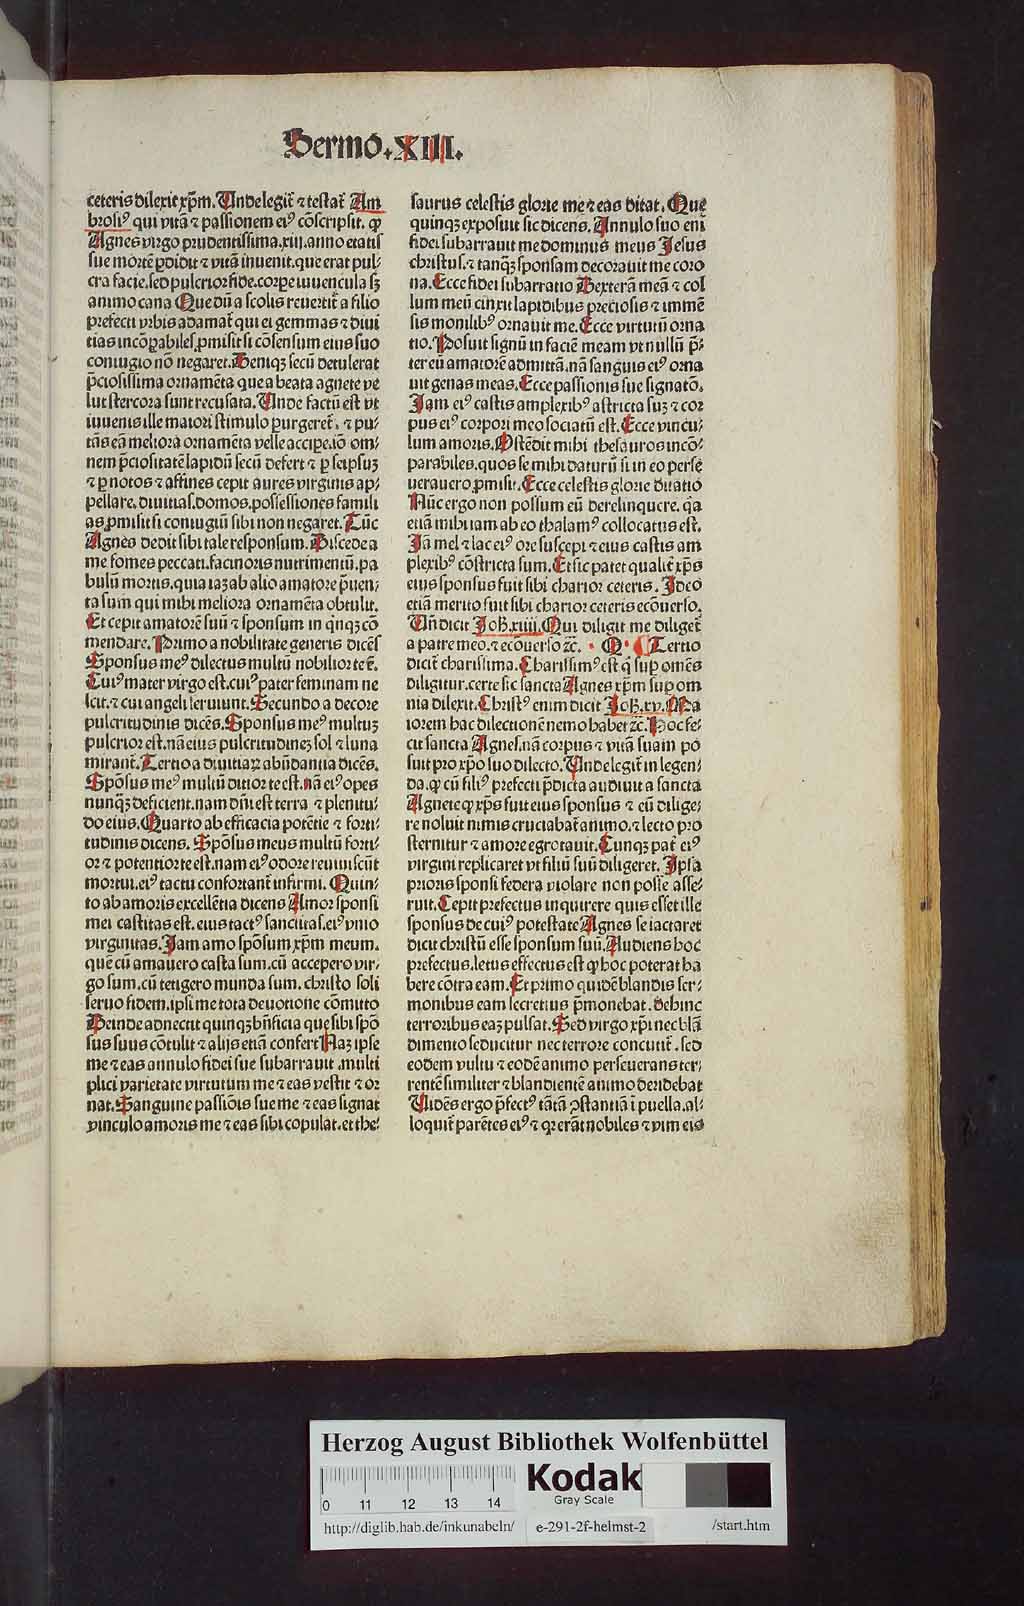 Sermo. XIII.
ceteris dilexit xp̄m. Vnde legit̄ ⁊ testat̄ Am
brosiꝰ qui vitā ⁊ passionem eiꝰ cōscripsit. ꝙ
Agnes virgo prudentissima. xiij. anno etatis
sue mortē ꝑdidit ⁊ vitā inuenit. que erat pul⸗
cra facie. sed pulcrior fide. corꝑe iuuencula sꝫ
animo cana Que dū a scolis reuertit̄ a filio
prefecti vrbis adamat̄ qui ei gemmas ⁊ diui
tias incōꝑabiles ꝓmisit si cōsensum eius suo
coniugio nō negaret. Deniqꝫ secū detulerat
p̄ciosissima ornamēta que a beata agnete ve
lut stercora sunt recusata. Vnde factū est vt
iuuenis ille maiori stimulo ꝑurgeret̄. ⁊ pu⸗
tās eā meliora ornamēta velle accipe. iō om⸗
nem p̄ciositatē lapidū secū defert ⁊ ꝑ seipsuꝫ
⁊ ꝑ notos ⁊ affines cepit aures virginis ap⸗
pellare. diuitias. domos. possessiones famili
as ꝓmisit si coniugiū sibi non negaret. Tūc
Agnes dedit sibi tale responsum. Discede a
me fomes peccati. facinoris nutrimentū. pa
bulū mortis. quia iaꝫ ab alio amatore p̄uen⸗
ta sum qui mihi meliora ornamēta obtulit.
Et cepit amatorē suū ⁊ sponsum in q̄nqꝫ cō
mendare. Primo a nobilitate generis dicēs
Sponsus meꝰ dilectus multū nobilior te ē.
Cuiꝰ mater virgo est. cuiꝰ pater feminam ne
scit. ⁊ cui angeli seruiunt. Secundo a decore
pulcritudinis dicēs. Sponsus meꝰ multuꝫ
pulcrior est. nā eius pulcritudineꝫ sol ⁊ luna
mirant̄. Tertio a diuitiaꝝ abūdantia dicēs.
Spōsus meꝰ multū ditior te est. nā eiꝰ opes
nunqꝫ deficient. nam dn̄i est terra ⁊ plenitu⸗
do eius. Quarto ab efficacia potētie ⁊ forti⸗
tudinis dicens. Spōsus meus multū forti⸗
or ⁊ potentior te est. nam eiꝰ odore reuiuiscūt
mortui. eiꝰ tactu confortant̄ infirmi. Quin⸗
to ab amoris excellētia dicens Amor sponsi
mei castitas est. eius tactꝰ sanctitas. eiꝰ vnio
virginitas. Jam amo spōsum xp̄m meum.
quē cū amauero casta sum. cū accepero vir⸗
go sum. cū tetigero munda sum. christo soli
seruo fidem. ipsi me tota deuotione cōmitto
Deinde adnectit quinqꝫ bn̄ficia que sibi spō
sus suus cōtulit ⁊ alijs etiā confert Naꝫ ipse
me ⁊ eas annulo fidei sue subarrauit. multi
plici varietate virtutum me ⁊ eas vestit ⁊ or
nat. Sanguine passiōis sue me ⁊ eas signat
vinculo amoris me ⁊ eas sibi copulat. et the⸗
saurus celestis glorie me ⁊ eas ditat. Que
quinqꝫ exposuit sic dicens. Annulo suo eni
fidei subarrauit me dominus meus Jesus
christus. ⁊ tanqꝫ sponsam decorauit me coro
na. Ecce fidei subarratio Dexterā meā ⁊ col
lum meū cinxit lapidibus preciosis ⁊ immē
sis monilibꝰ ornauit me. Ecce virtutū orna
tio. Posuit signū in faciē meam vt nullū p̄⸗
ter eū amatorē admittā. nā sanguis eiꝰ orna
uit genas meas. Ecce passionis sue signatō.
Jam eiꝰ castis amplexibꝰ astricta suꝫ ⁊ cor
pus eiꝰ corpori meo sociatū est. Ecce vincu⸗
lum amoris. Ostēdit mihi thesauros incō⸗
parabiles. quos se mihi daturū si in eo perse
uerauero ꝓmisit. Ecce celestis glorie ditatio
Nūc ergo non possum eū derelinquere. qa
etiā mihi iam ab eo thalamꝰ collocatus est.
Jā mel ⁊ lac eiꝰ ore suscepi ⁊ eius castis am
plexibꝰ cōstricta sum. Et sic patet qualit̄ xp̄s
eius sponsus fuit sibi charior ceteris. Jdeo
etiā merito fuit sibi charior ceteris ecōuerso.
Vn̄ dicit Joh̄. xiiij. Qui diligit me diliget̄
a patre meo. ⁊ ecōuerso ⁊c̄. · Q · ¶ Tertio
dicit̄ charissima. Charissimꝰ est q̄ suꝑ omēs
diligitur. certe sic sancta Agnes xp̄m suꝑ om
nia dilexit. Christꝰ enim dicit Joh̄. xv. Ma
iorem hac dilectionē nemo habet ⁊c̄. Hoc fe⸗
cit sancta Agnes. nā corpus ⁊ vitā suam po
suit pro xp̄o suo dilecto. Vnde legit̄ in legen⸗
da. ꝙ cū filiꝰ prefecti p̄dicta audiuit a sancta
Agnete ꝙ xp̄s fuit eius sponsus ⁊ eū dilige⸗
re noluit nimis cruciabat̄ animo. ⁊ lecto pro
sternitur ⁊ amore egrotauit. Cunqꝫ pat̄ eiꝰ
virgini replicaret vt filiū suū diligeret. Jpsa
prioris sponsi federa violare non posse asse⸗
ruit. Cepit prefectus inquirere quis esset ille
sponsus de cuiꝰ potestate Agnes se iactaret
dicit christū esse sponsum suū. Audiens hoc
prefectus. letus effectus est ꝙ hoc poterat ha
bere cōtra eam. Et primo quidē blandis ser⸗
monibus eam secretius p̄monebat. dehinc
terroribus eaꝫ pulsat. Sed virgo xp̄i nec blā
dimento seducitur nec terrore concutit̄. sed
eodem vultu ⁊ eodē animo perseuerans ter⸗
rentē similiter ⁊ blandientē animo deridebat
Vidēs ergo p̄fectꝰ tātā ꝯstantiā ī puella. al⸗
loquit̄ parētes eiꝰ ⁊ qꝛ erāt nobiles ⁊ vim eis
Herzog August Bibliothek Wolfenbüttel
0 11 12 13 14
Kodak
Gray Scale
http://diglib.hab.de/inkunabeln/ e-291-2f-helmst-2 /start.htm